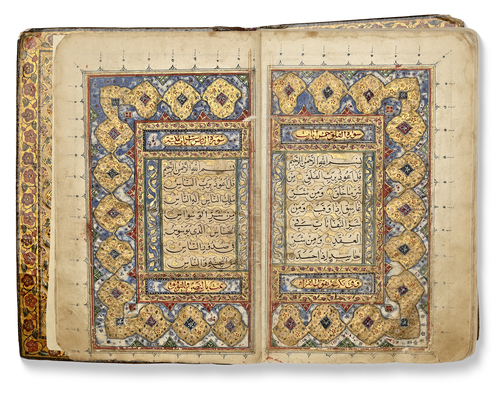 بسم الله الرحمن الرحيم
قل اعوذ برب الفلق
من شر ما خلق ومن شر
غاسق اذا وقب ومن
شر النفاثات في
العقد ومن شر
حاسد اذا حسد
بسم الله الرحمن الرحيم
قل اعوذ برب الناس
ملك الناس اله الناس
من شر الوسواس
الخناس الذي يوسوس
في صدور الناس
من الجنة والناس